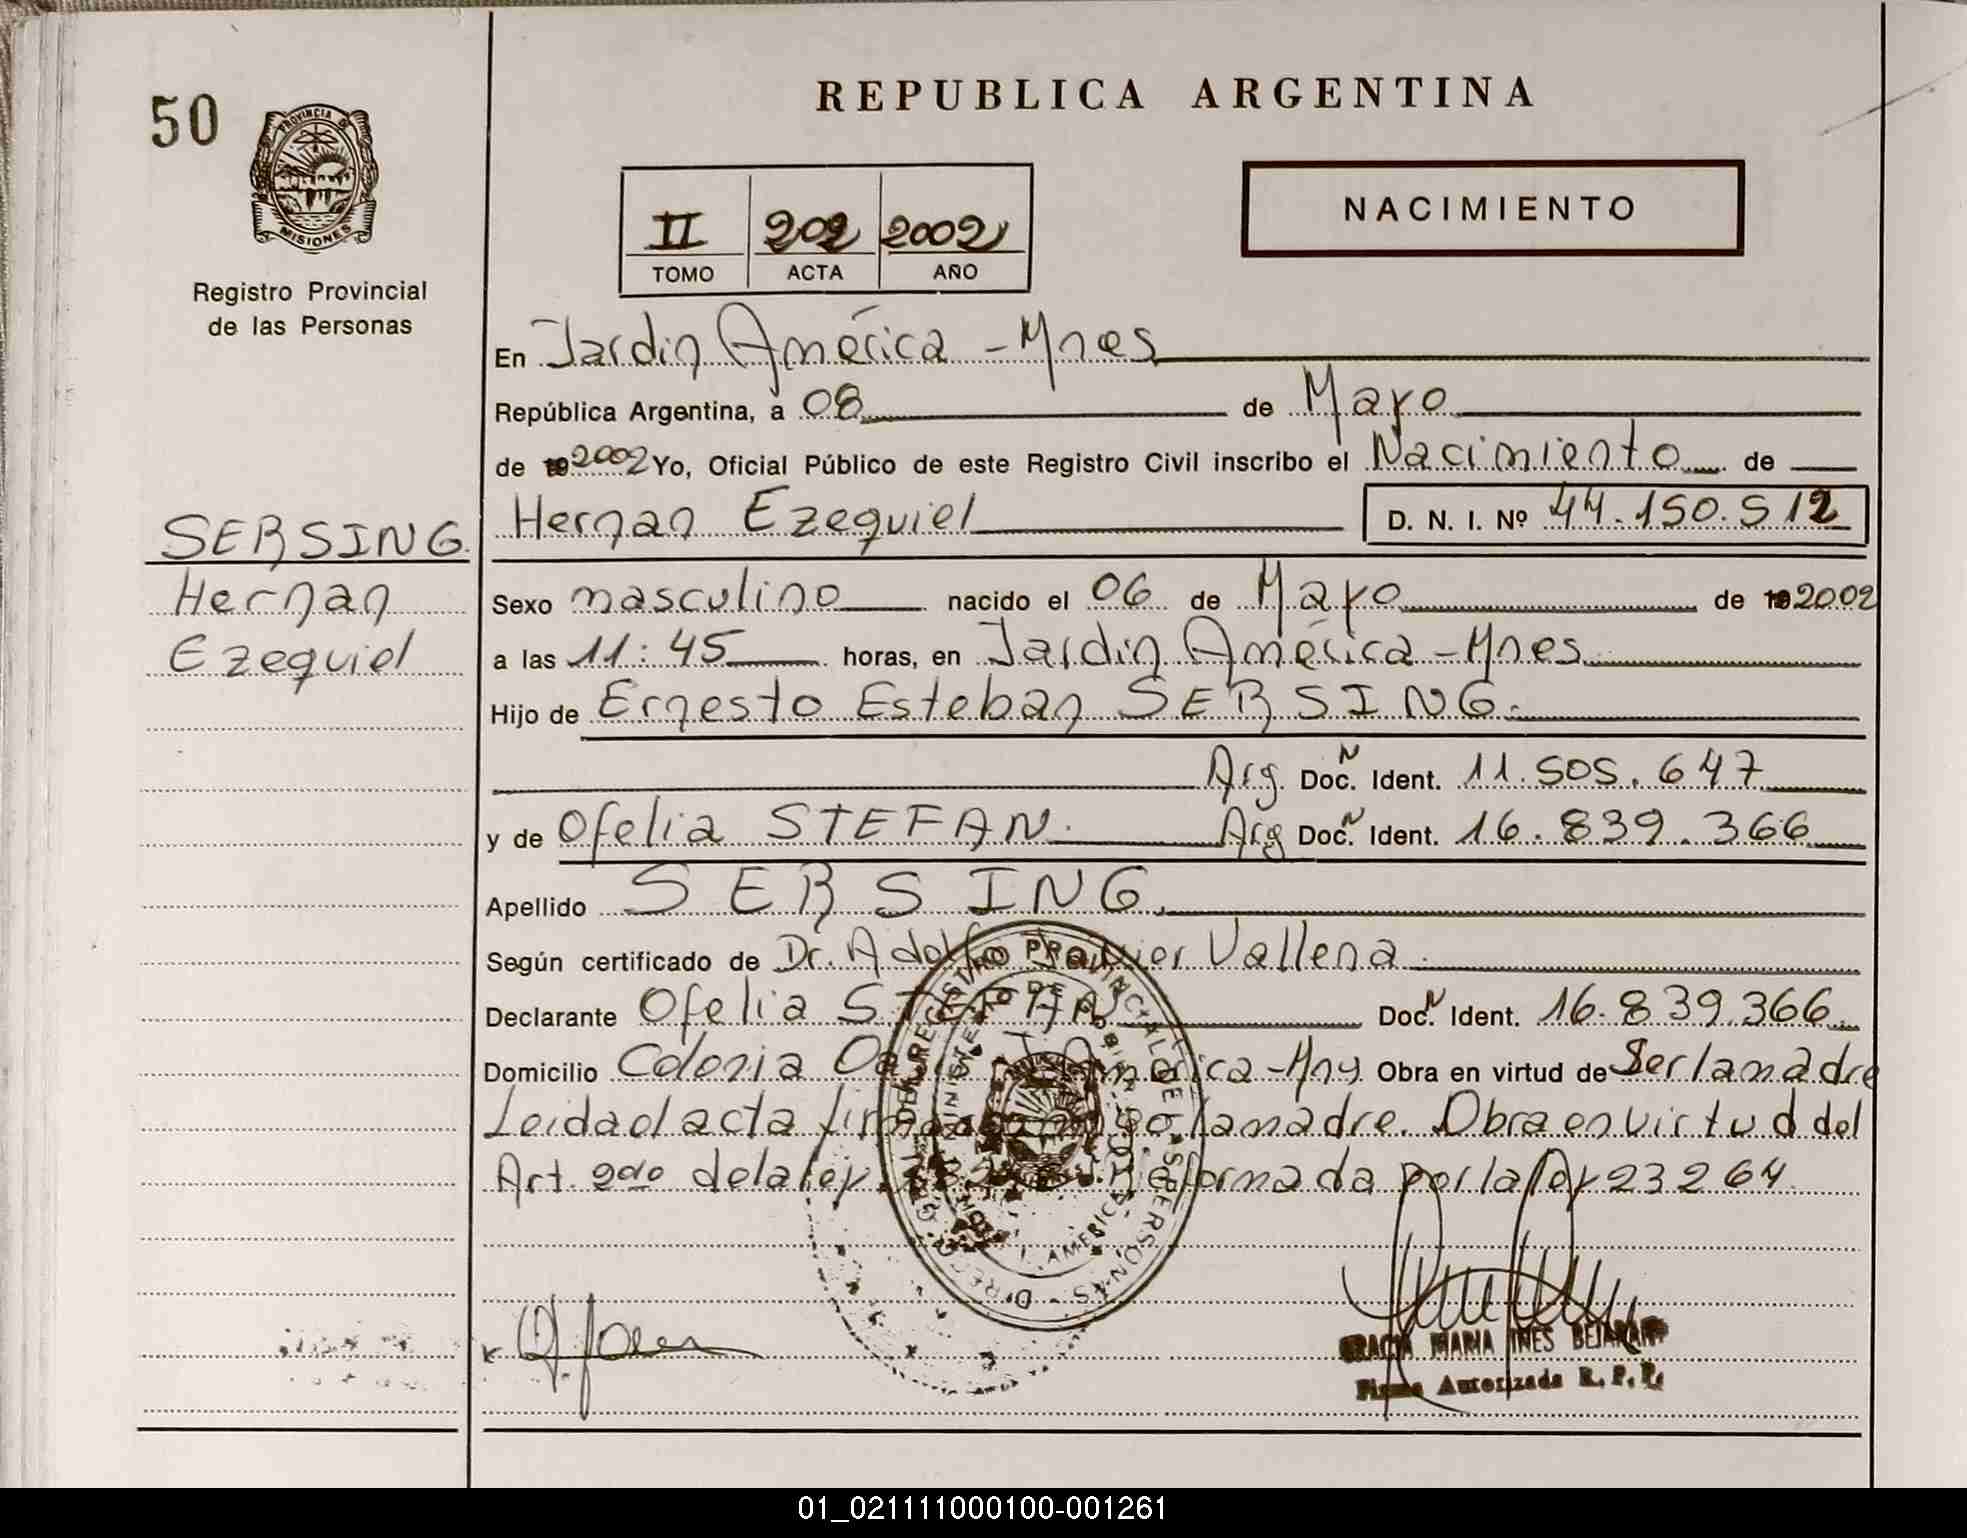 REPUBLICA ARGENTINA
50
PROVINCIA DE
MISIONES
Registro Provincial
de las Personas
II 202 2002
TOMO ACTA AÑO
NACIMIENTO
En Jardin América - Mnes
República Argentina, a 08 de Mayo
de 19 2002 Yo, Oficial Público de este Registro Civil inscribo el Nacimiento de
Hernan Ezequiel D. N. I. Nº 44.150.512
SERSING
Hernan
Ezequiel
Sexo masculino nacido el 06 de Mayo de 19 2002
a las 11:45 horas, en Jardin América - Mnes
Hijo de Ernesto Esteban SERSING.
Arg. Doc. N Ident. 11.505.647
y de Ofelia STEFAN. Arg Doc. N Ident. 16.839.366
Apellido SERSING.
Según certificado de Dr. Adolfo Javier Vallena.
Declarante Ofelia STEFAN Doc. N Ident. 16.839.366
Domicilio Colonia América - Mns Obra en virtud de Ser la madre
Leida el acta la madre. Obra en virtud del
Art. 2do de la ley reformada por la ley 23264
DIRECC. G. DEL REGISTRO PROVINCIAL DE LAS PERSONAS
MINISTERIO DE GOBIERNO
AMERICA
GRACIA MARIA INES BEJARANO
Firma Autorizada R. P. P.
01_021111000100-001261